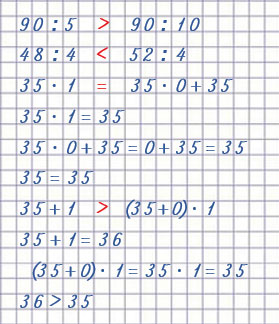 90 : 5 > 90 : 10
48 : 4 < 52 : 4
35 · 1 = 35 · 0 + 35
35 · 1 = 35
35 · 0 + 35 = 0 + 35 = 35
35 = 35
35 + 1 > (35 + 0) · 1
35 + 1 = 36
(35 + 0) · 1 = 35 · 1 = 35
36 > 35